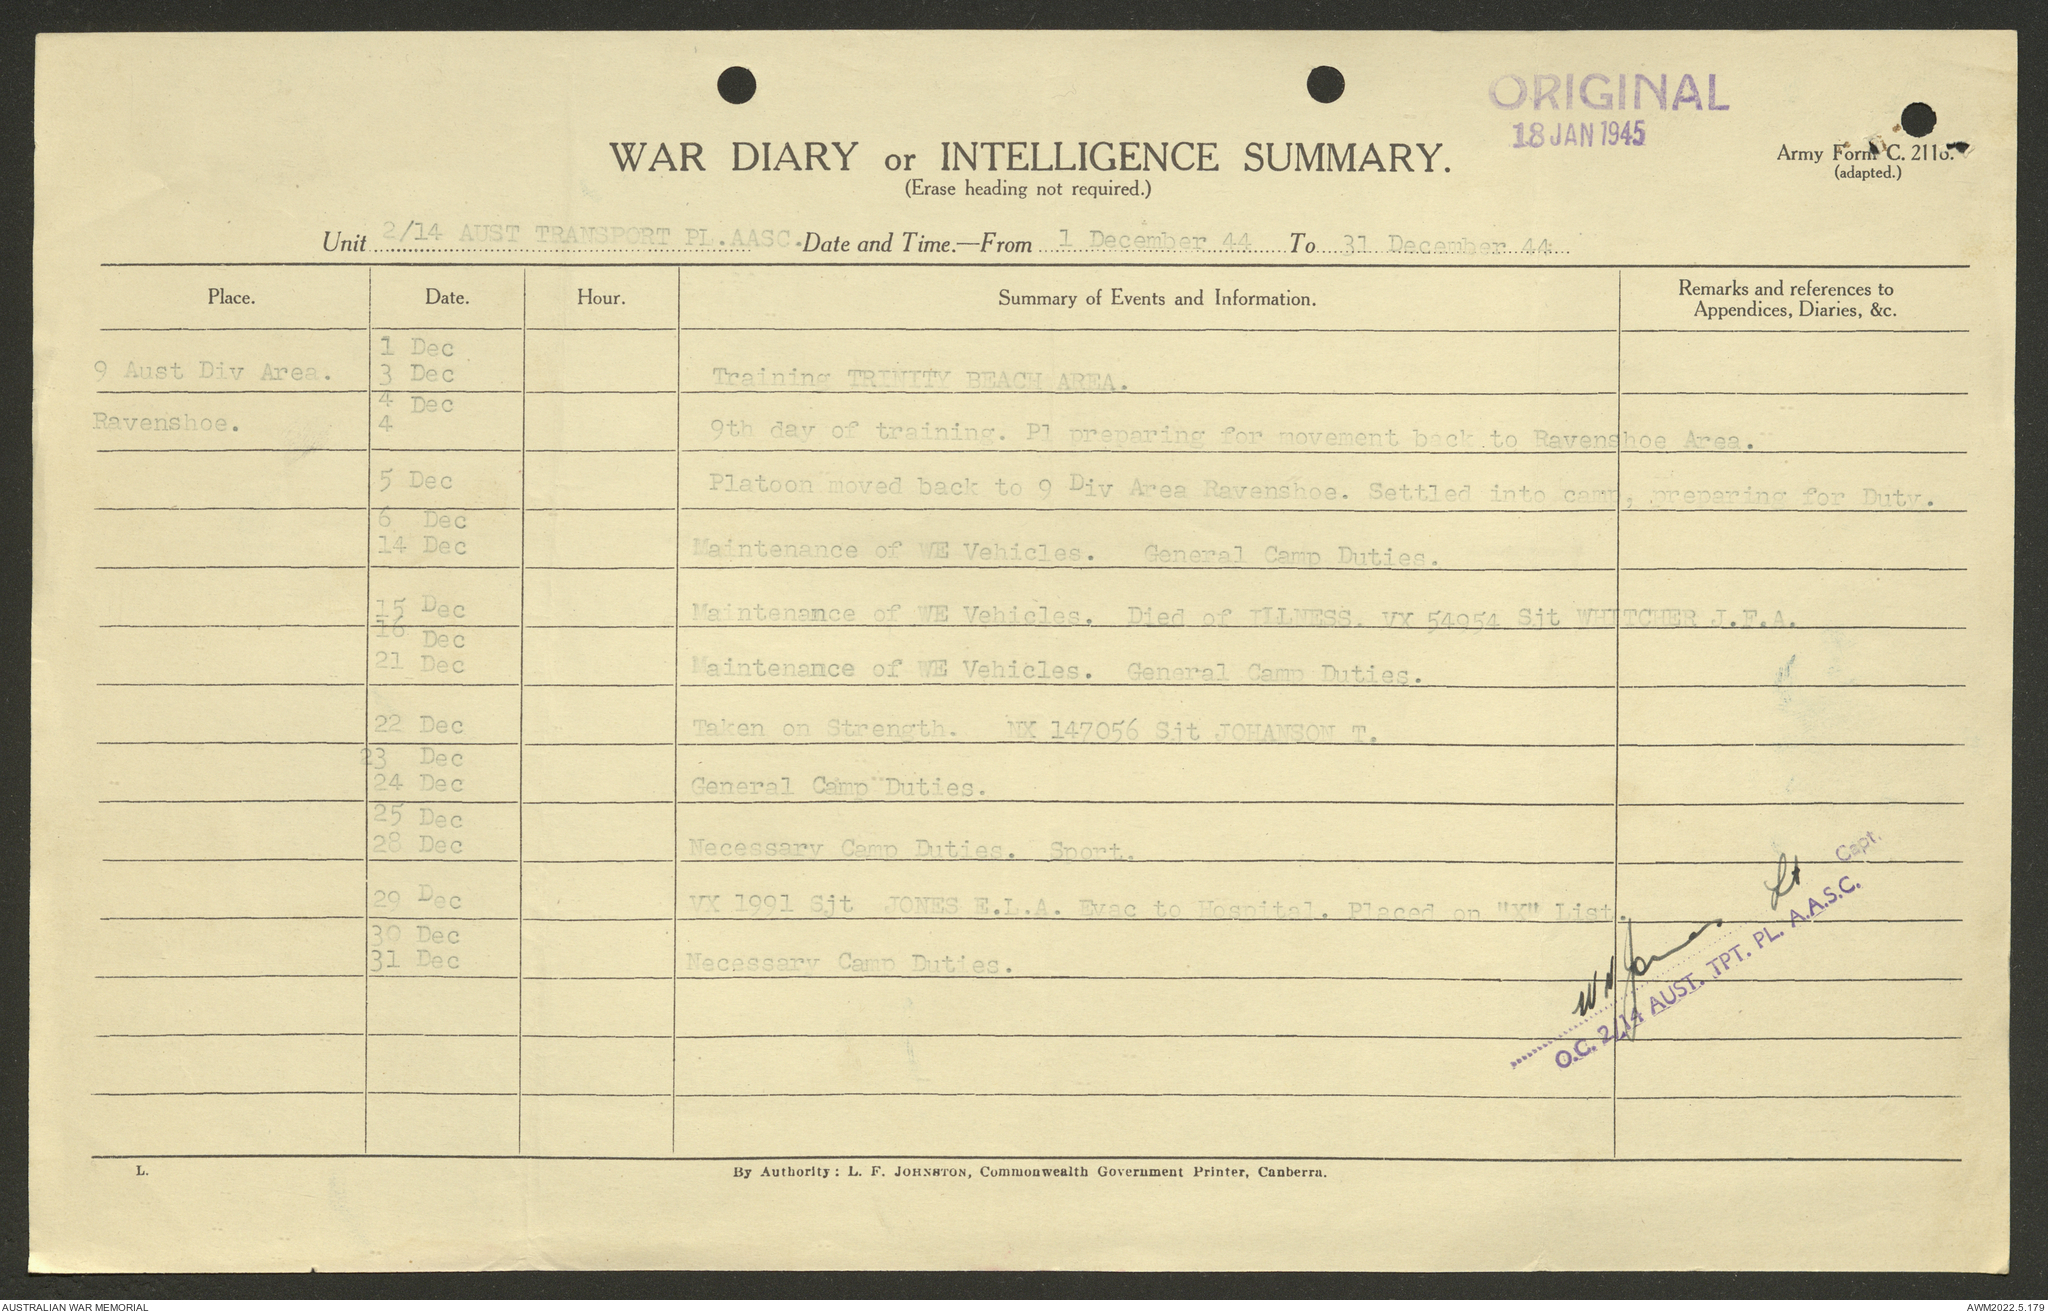 ORIGINAL
18 JAN 1945
WAR DIARY or INTELLIGENCE SUMMARY.
(Erase heading not required.)
Army Form C. 2118.
(adapted.)
Unit 2/14 AUST TRANSPORT PL.AASC. Date and Time.—From 1 December 44 To 31 December 44
Place. Date. Hour. Summary of Events and Information. Remarks and references to Appendices, Diaries, &c.
1 Dec
9 Aust Div Area. 3 Dec Training TRINITY BEACH AREA.
4 Dec
Ravenshoe. 4 9th day of training. Pl preparing for movement back to Ravenshoe Area.
5 Dec Platoon moved back to 9 Div Area Ravenshoe. Settled into camp, preparing for Duty.
6 Dec
14 Dec Maintenance of WE Vehicles. General Camp Duties.
15 Dec Maintenance of WE Vehicles. Died of ILLNESS. VX 54954 Sjt WHITCHER J.F.A.
16 Dec
21 Dec Maintenance of WE Vehicles. General Camp Duties.
22 Dec Taken on Strength. NX 147056 Sjt JOHANSON T.
23 Dec
24 Dec General Camp Duties.
25 Dec
28 Dec Necessary Camp Duties. Sport.
29 Dec VX 1991 Sjt JONES E.L.A. Evac to Hospital. Placed on "X" List.
30 Dec
31 Dec Necessary Camp Duties.
W N Jones Lt Capt.
O.C. 2/14 AUST. TPT. PL. A.A.S.C.
L. By Authority: L. F. JOHNSTON, Commonwealth Government Printer, Canberra.
AUSTRALIAN WAR MEMORIAL AWM2022.5.179